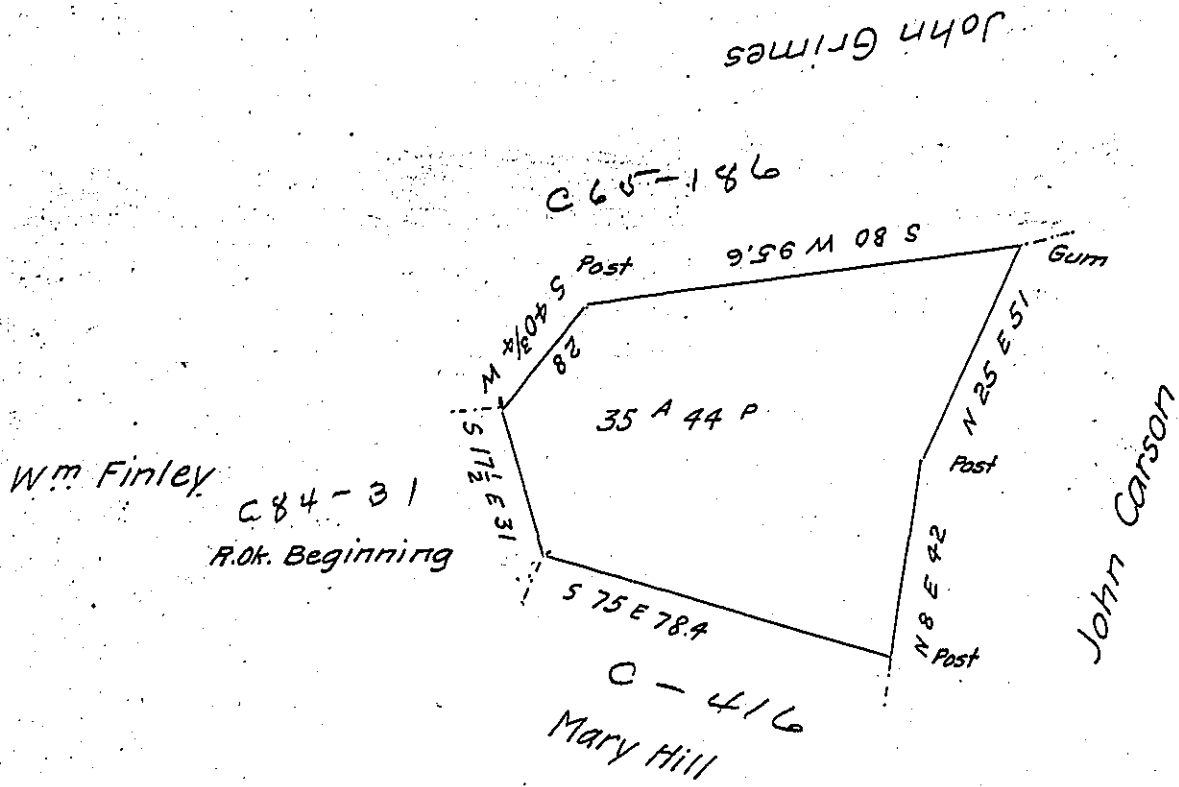 John Grimes
C65-186
S 80 W 95.6
Post
Gum
S 40¾ W
28
N 25 E 51
35 A 44 P
Wm Finley
C84-31
S 17½ E 31
R.Ok. Beginning
Post
John Carson
N 8 E 42
S 75 E 78.4
Post
C-416
Mary Hill